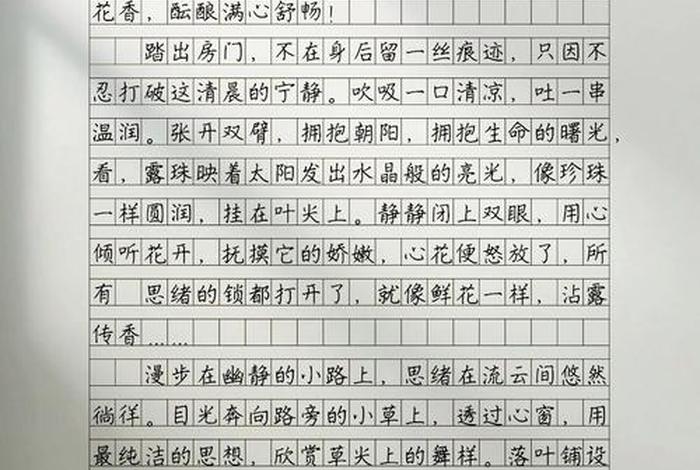 花香，酝酿满心舒畅！
踏出房门，不在身后留一丝痕迹，只因不
忍打破这清晨的宁静。吹吸一口清凉，吐一串
温润。张开双臂，拥抱朝阳，拥抱生命的曙光，
看，露珠映着太阳发出水晶般的亮光，像珍珠
一样圆润，挂在叶尖上。静静闭上双眼，用心
倾听花开，抚摸它的娇嫩，心花便怒放了，所
有 思绪的锁都打开了，就像鲜花一样，沾露
传香……
漫步在幽静的小路上，思绪在流云间悠然
徜徉。目光奔向路旁的小草上，透过心窗，用
最纯洁的思想，欣赏草尖上的舞样。落叶铺设